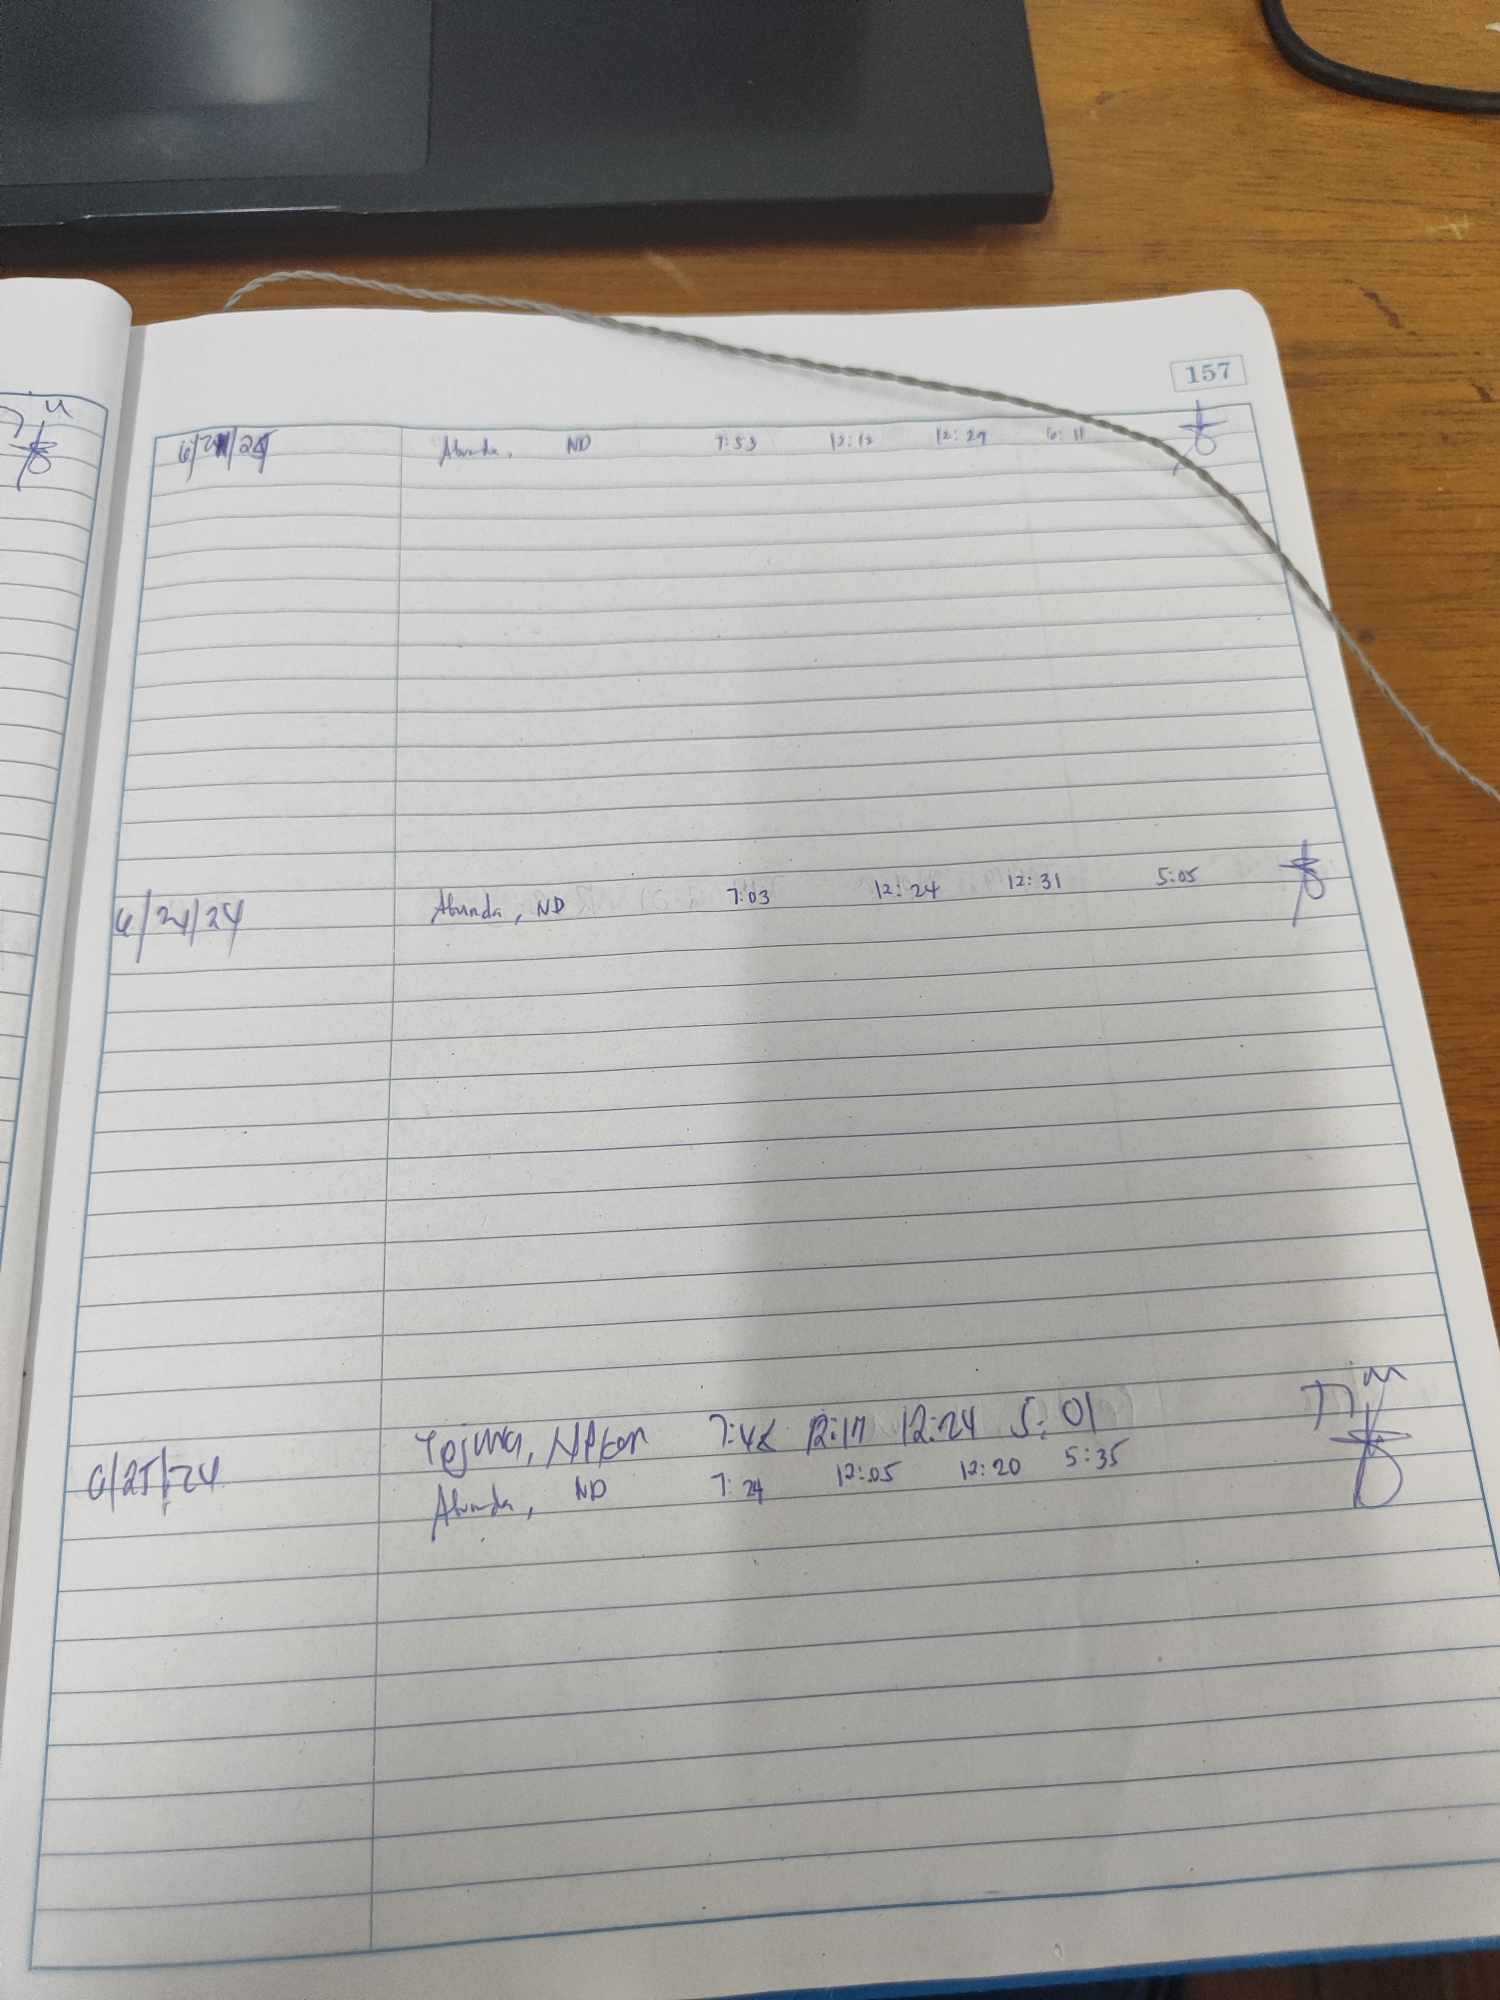 157
Abunda, ND 7:53 12:12 12:29 6:11
6/24/24 Abunda, ND 7:03 12:24 12:31 5:05
7:48 12:17 12:24 5:01
6/25/24
Abunda, ND 7:24 12:05 12:20 5:35